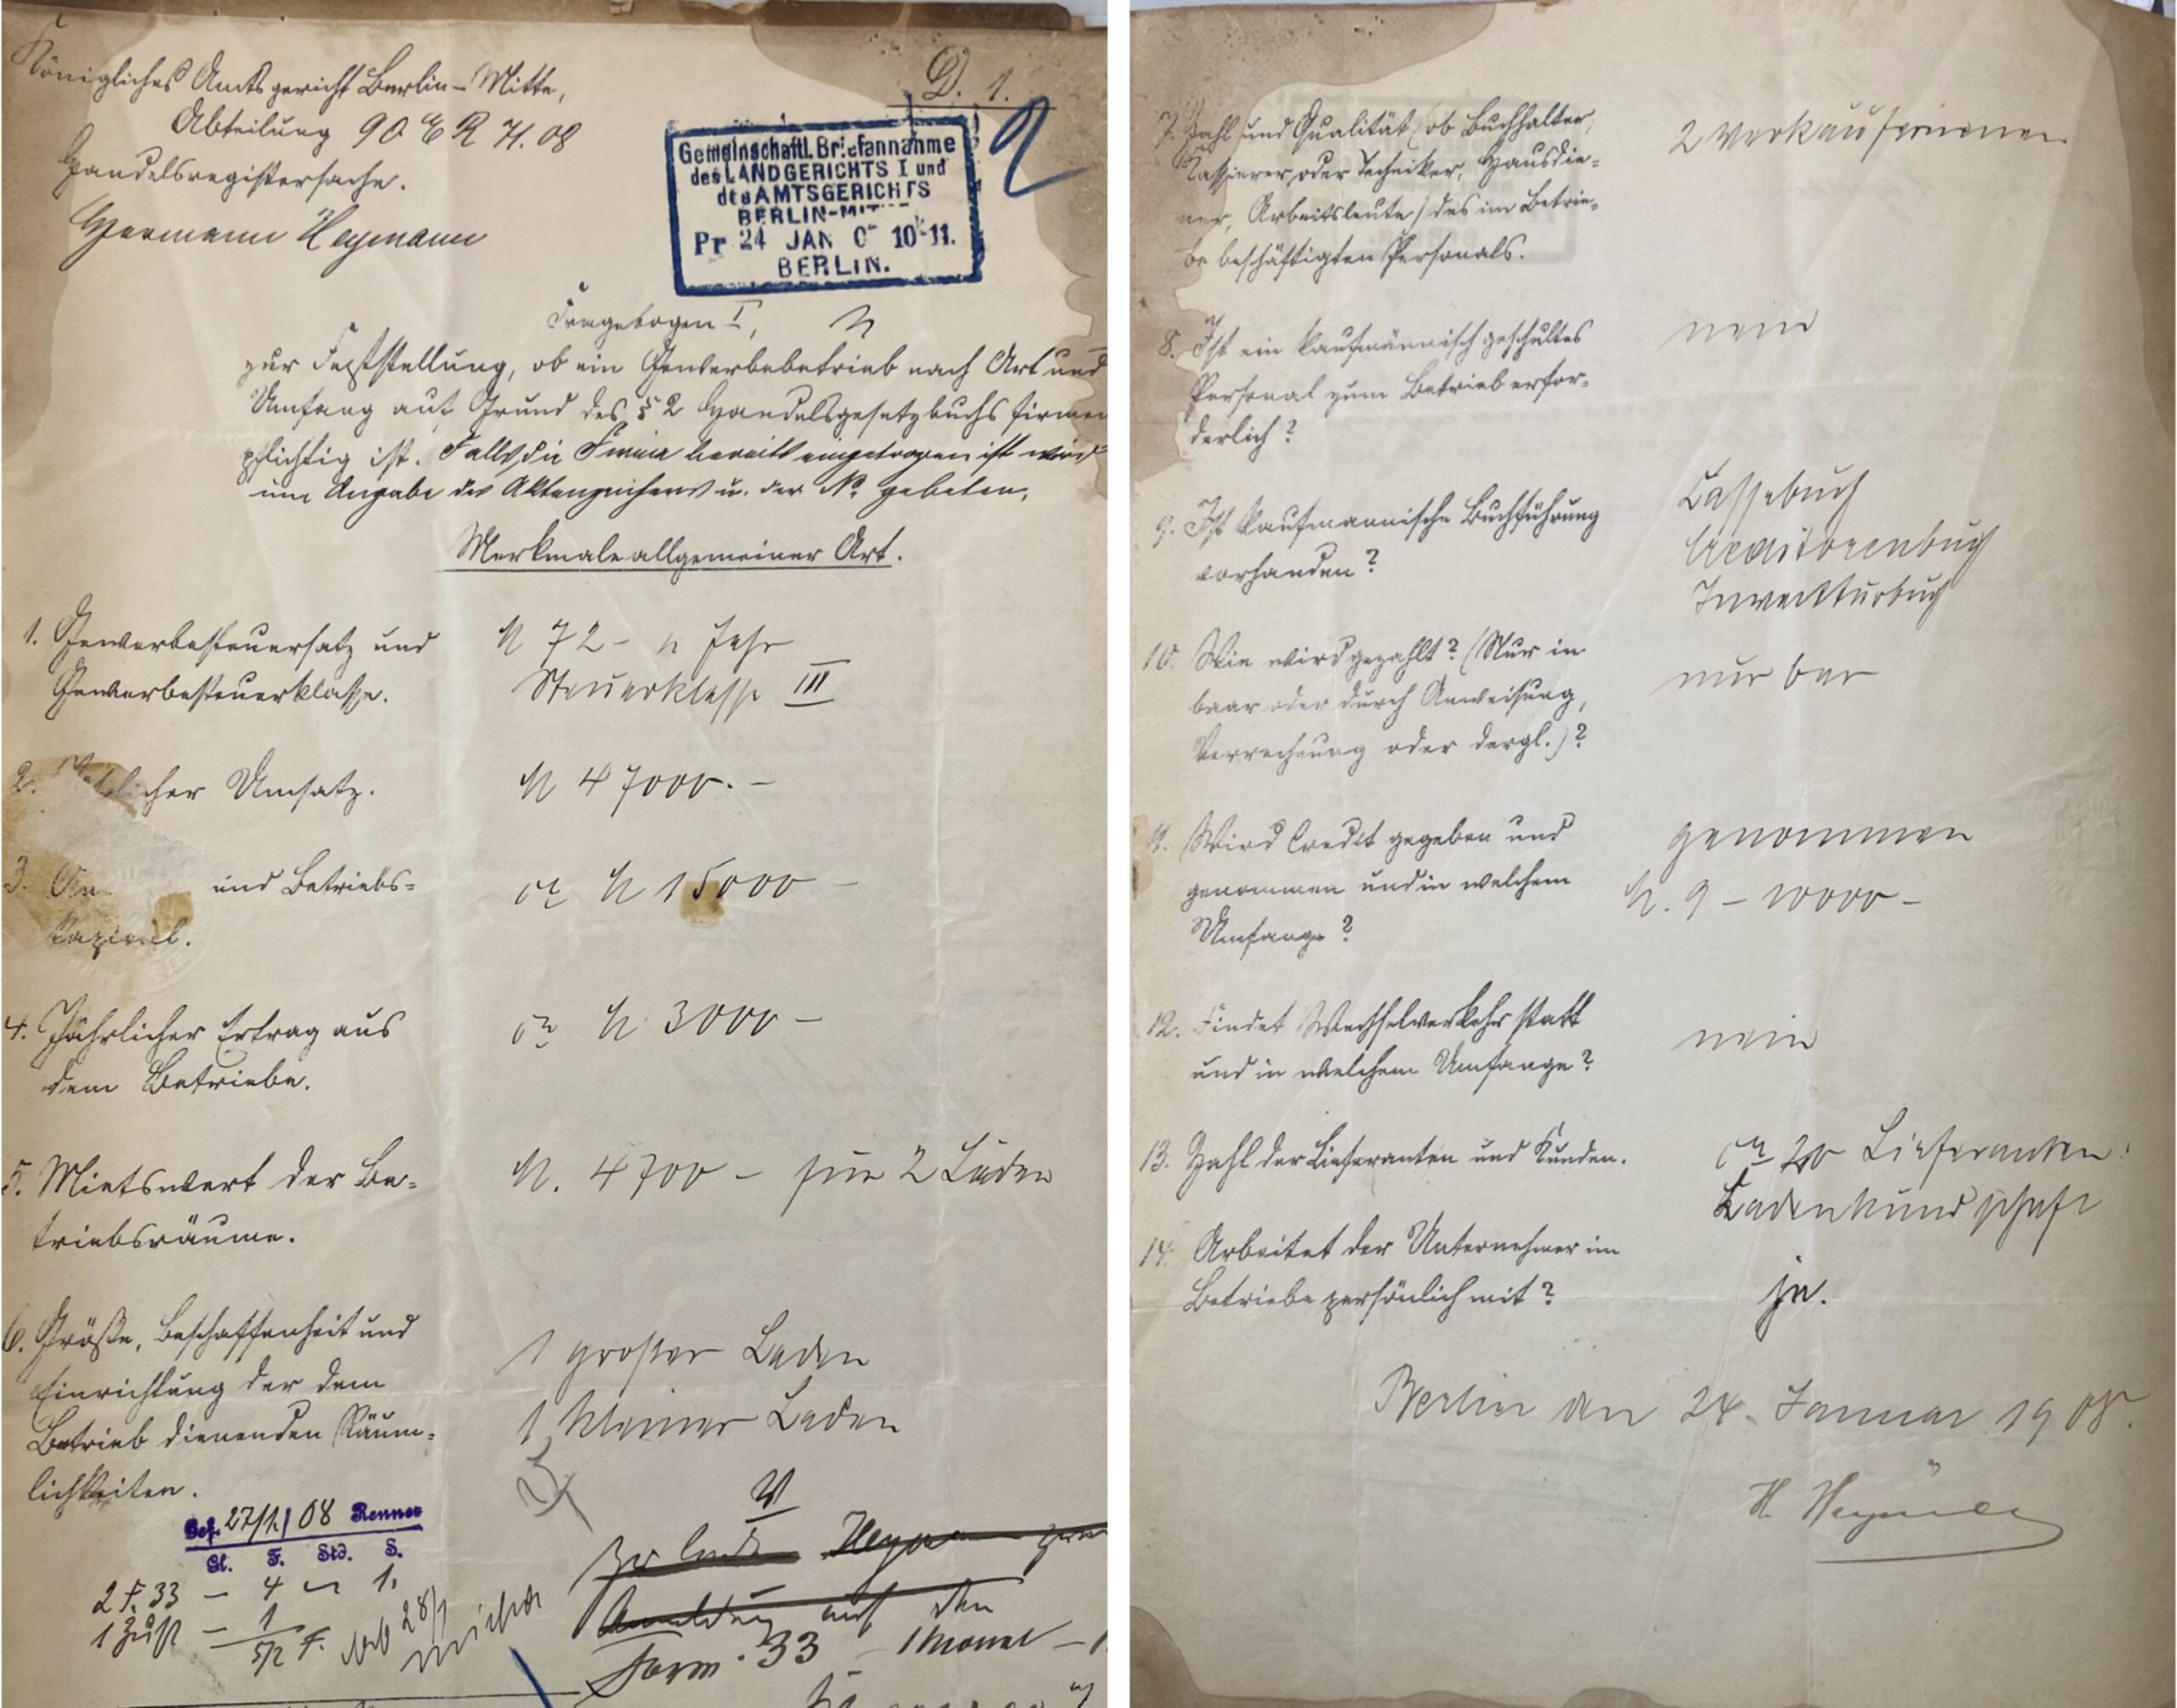 Königliches Amtsgericht Berlin-Mitte,
Abteilung 90 E R H. 08
Handelsregistersache.
Hermann Heymann
D. 1.
2
Gemeinschaftl. Briefannahme
des LANDGERICHTS I und
des AMTSGERICHTS
BERLIN-MIT
Pr 24 JAN 0 10-11.
BERLIN.
Fragebogen I,
zur Feststellung, ob ein Gewerbebetrieb nach Art und
Umfang auf Grund des § 2 Handelsgesetzbuchs firmen
pflichtig ist. Falls die Firma bereits eingetragen ist wird
um Angabe des Aktenzeichens u. der No gebeten.
Merkmale allgemeiner Art.
1. Gewerbesteuersatz und
Gewerbesteuerklasse.
M 72 - p Jahr
Steuerklasse III
2. licher Umsatz.
M 47000. -
3. An und Betriebs=
kapital.
ca M 15000 -
4. Jährlicher Ertrag aus
dem Betriebe.
ca M 3000 -
5. Mietswert der Be=
triebsräume.
M. 4700 - für 2 Läden
6. Größe, Beschaffenheit und
Einrichtung der dem
Betrieb dienenden Räum=
lichkeiten.
1 großer Laden
1 kleiner Laden
V
Gef. 27/1/08 Renner
Gl. F. Std. S.
2 F. 33 - 4 - 1.
1 - 1
5/2 F. ab 28/1
Heyn
Anmeldung auf den
Form. 33 - 1 Monat - 1
7. Zahl und Qualität (ob Buchhalter,
Kassierer oder Techniker, Hausdie=
ner, Arbeitsleute) des im Betrie=
be beschäftigten Personals.
2 Verkäuferinnen
8. Ist ein kaufmännisch geschultes
Personal zum Betrieb erfor=
derlich?
nein
9. Ist kaufmännische Buchführung
vorhanden?
Cassebuch
Creditorenbuch
Inventurbuch
10. Wie wird gezahlt? (Nur in
baar oder durch Anweisung,
Verrechnung oder dergl.)?
nur bar
11. Wird Credit gegeben und
genommen und in welchem
Umfange?
genommen
M. 9 - 10000 -
12. Findet Wechselverkehr statt
und in welchem Umfange?
nein
13. Zahl der Lieferanten und Kunden.
ca 20 Lieferanten.
Ladenkundschaft
14. Arbeitet der Unternehmer im
Betriebe persönlich mit?
ja.
Berlin den 24. Januar 1908.
H. Heymann